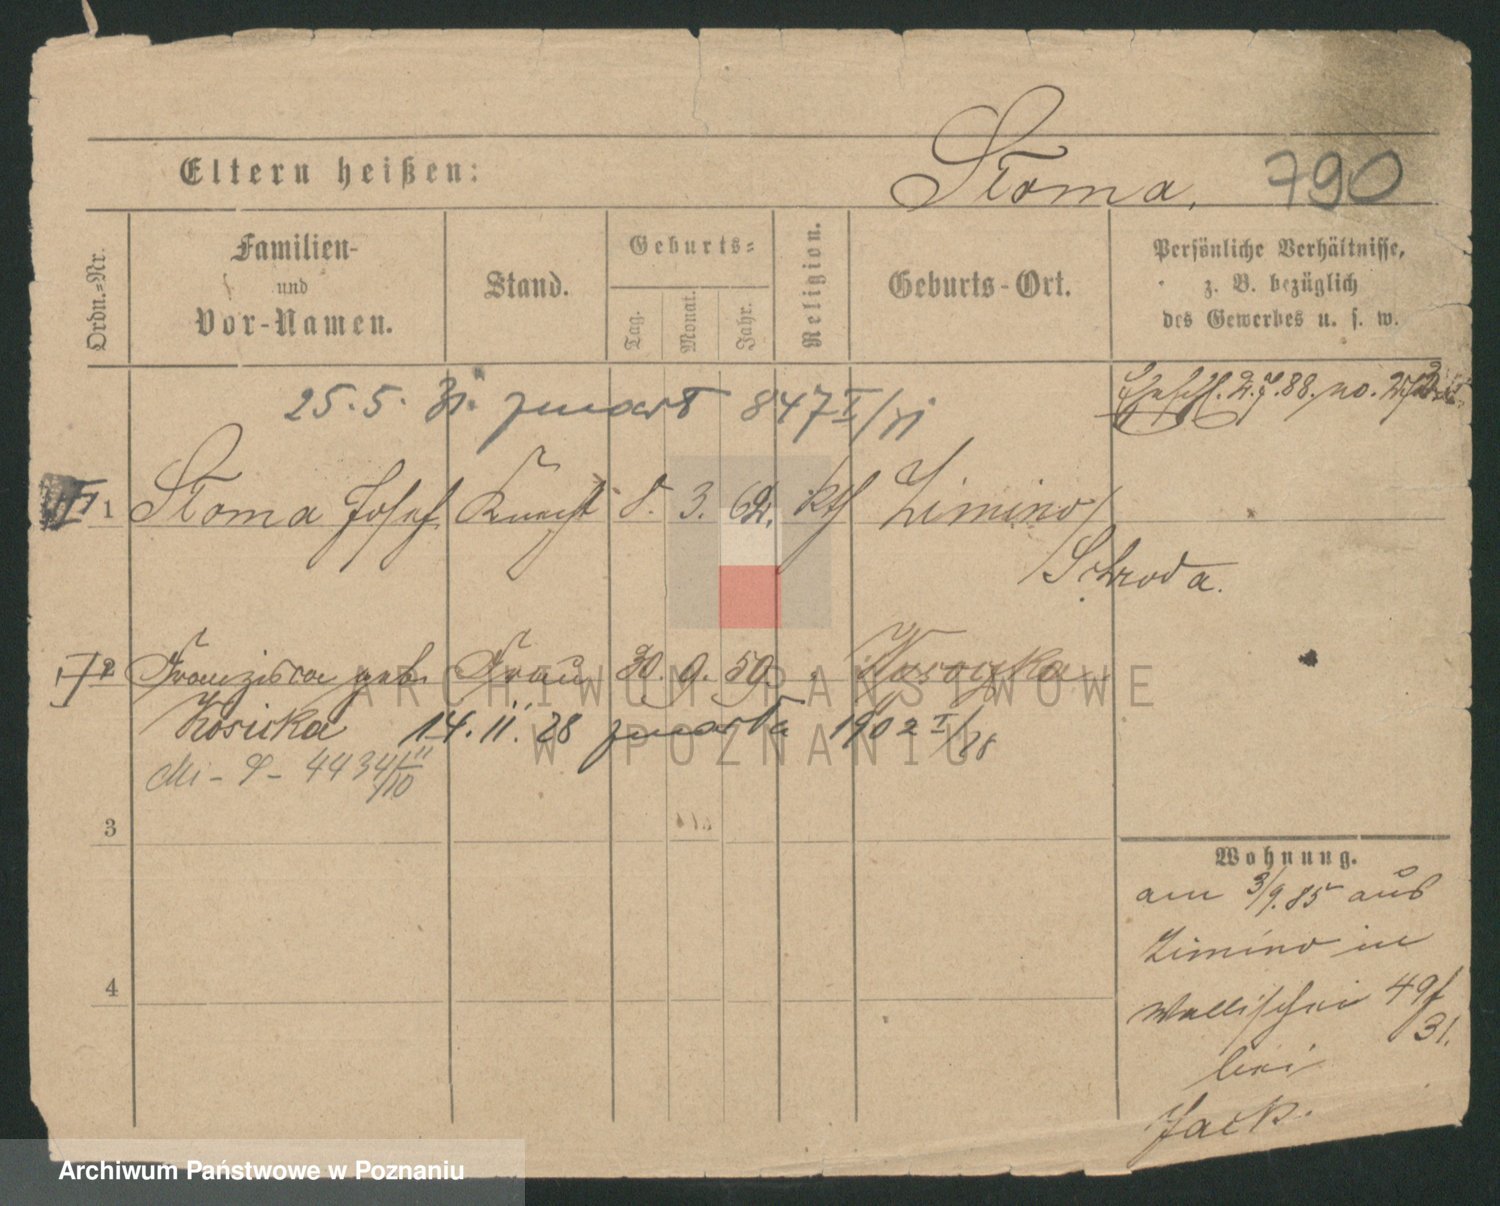 Eltern heißen:
Stoma, 790
Ordn.=Nr.
Familien-
und
Vor-Namen.
Stand.
Geburts=
Tag.
Monat.
Jahr.
Religion.
Geburts-Ort.
Persönliche Verhältnisse,
z. B. bezüglich
des Gewerbes u. s. w.
25.5.31. zmarł 847 I/31
2.7.88. no.
1 Stoma Josef Knecht 8. 3. 62. kth Zimino/
Schroda.
2 Franziska geb. Frau 30. 9. 59
Kosicka 14. 11. 28 zmarła 1902 I/28
4434
3
Wohnung.
am 3/9. 85 aus
Zimino in
Wallischei 49/
31.
bei
Jack.
4
ARCHIWUM PAŃSTWOWE
W POZNANIU
Archiwum Państwowe w Poznaniu